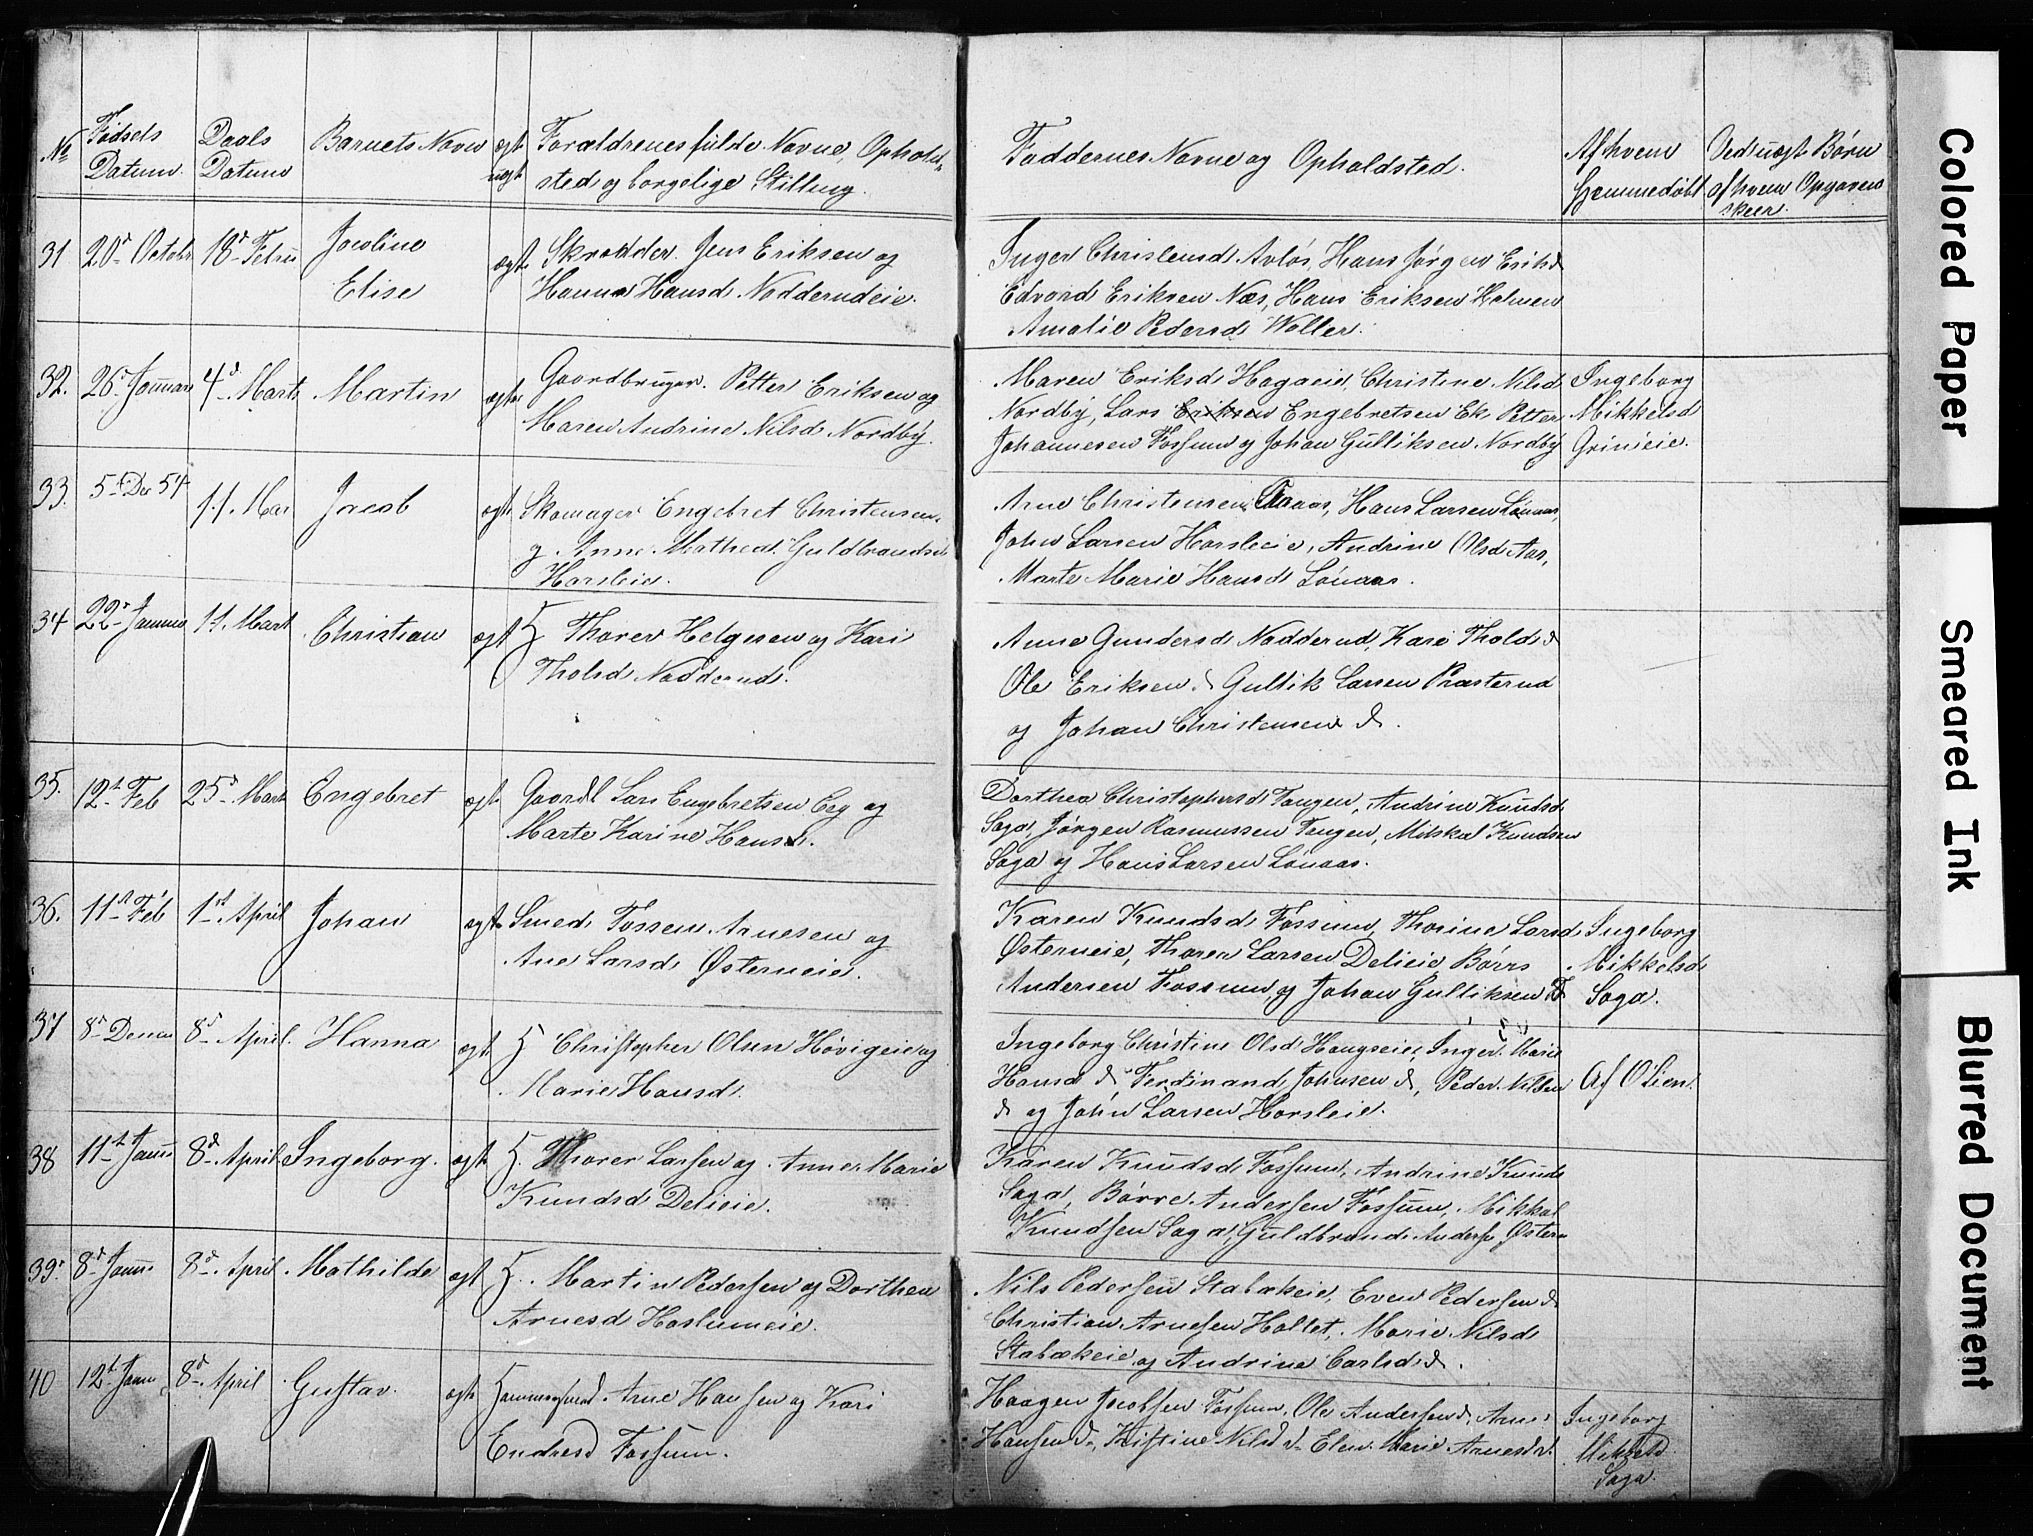 No
Fødsels
Datum.
Daabs
Datum
Barnets Navn
ægt
uægt
Forældrenes fulde Navne, Ophold-
sted og borgelige Stilling.
Faddernes Navne og Opholdsted.
Af hvem
Hjemmedøbt
Ved uægt Børn
af hvem Opgaven
skeer.
31 20d Octobr 18d Febru Jacoline
Elise
ægt. Skrædder. Jens Eriksen og
Hanna Hansd Nadderudeie.
Inger Christensd Avløs, Hans Jørgen Eriks
Edvard Eriksen Næs, Hans Eriksen Holmen
Amalie Pedersd Woller.
32. 26d Januar 4d Marts Martin ægte Gaardbruger. Petter Eriksen og
Maren Andrine Nilsd Nordby.
Maren Eriksd Hagaeie, Christine Nilsd
Nordby, Lars Eriksen Engebretsen Ek Petter
Johannesen Fossum og Johan Gulliksen Nordby
Ingeborg
Mikkelsd
Grinieie.
33. 5 Dec 54 11. Mar Jacob ægt. Skomager Engebret Christensen
og Anne Mathea Guldbrandsd
Horsleie.
Arne Christensen Aaas, Hans Larsen Lønaas,
John Larsen Horsleeie, Andrine Olsd Aas,
Marte Marie Hansd Lønaas.
34 22d Januar 11. Mart Christian ægt H Thorer Helgesen og Kari
Tholsd Nadderud.
Anne Gundersd Nadderud, Kari Tholsd d
Ole Eriksen d Gullik Larsen Præsterud
og Johan Christensen d.
35. 12t Feb 25d Mart Engebret ægt. Gaardb Lars Engebretsen Eeg og
Marte Karine Hansd.
Dorthea Christophersd Tangen, Andrine Knudsd
Saga, Jørgen Rasmussen Tangen, Mikkel Knudsen
Saga og Hans Larsen Lønaas.
36. 11t Feb 1st April Johan ægt. Smed Tossen Arnesen og
Ane Larsd Østerneie.
Karen Knudsd Fossum, Thorine Larsd
Østerneie, Thorer Larsen Delieie Børrs
Andersen Fossum, og Johan Gulliksen F
Ingeborg
Mikkelsd
Saga.
37 8d Decem 8d April. Hanna ægt H Christopher Olsen Høvigeie og
Marie Hansd.
Ingeborg Christine Olsd Haugseie, Inger Marie
Hansd d Ferdinand Johnsen d, Peder Nilsen
d og John Larsen Horsleie.
Af O Lien.
38 11t Janu 8d April Ingeborg. ægt H. Thorer Larsen og Anne Marie
Knudsd Delieie.
Karen Knudsd Fossum, Andrine Knuds
Saga, Børre Andersen Fossum, Mikkel
Knudsen Saga, Guldbrand Anders Østern
39. 8d Janu 8d April. Mathilde ægt H. Martin Pedersen og Dorthea
Arnesd Haslumeie.
Nils Pedersen Stabækeie, Even Pedersen d
Christian Arnesen Hallet, Marie Nilsd
Stabækeie og Andrine Carlsd d.
40 12t Janu 8d April Gustav. ægt Hammersmed. Arne Hansen og Kari
Endresd Fossum.
Haagen Jacobsen Fossum, Ole Andersen d, Arne
Hansen d, Kistine Nilsd d Elen Marie Arnesd d.
Ingeborg
Mikkelsd
Saga.
Colored Paper
Smeared Ink
Blurred Document